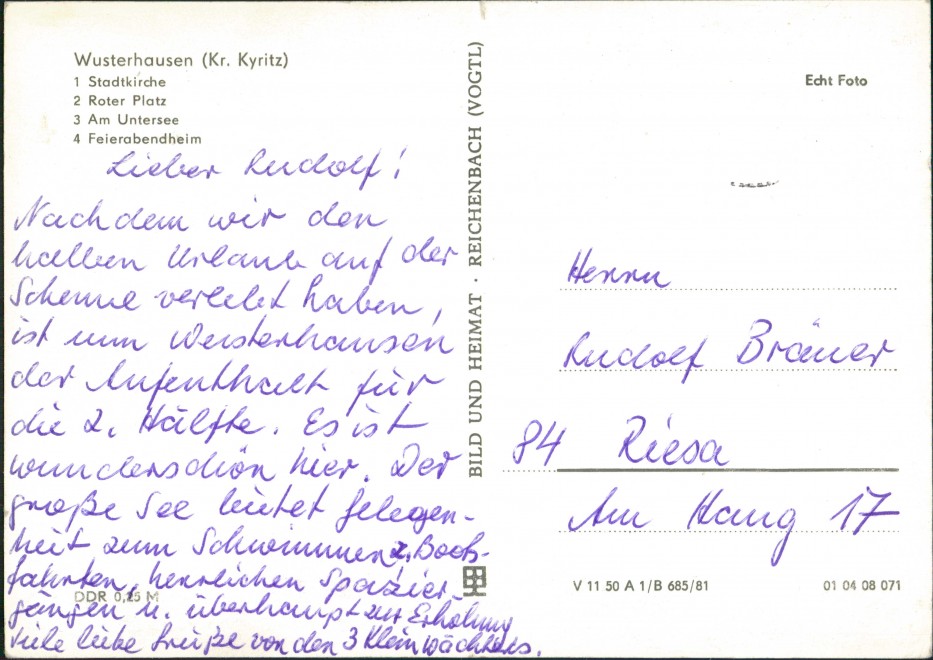 Wusterhausen (Kr. Kyritz)
1 Stadtkirche
2 Roter Platz
3 Am Untersee
4 Feierabendheim
Lieber Rudolf!
Nachdem wir den
halben Urlaub auf der
Scheune verlebt haben,
ist nun Wusterhausen
der Aufenthalt für
die 2. Hälfte. Es ist
wunderschön hier. Der
große See bietet Gelegen-
heit zum Schwimmen, Boots-
fahrten, herrlichen Spazier-
gängen u. überhaupt zur Erholung
Viele liebe Grüße von den 3 Kleinwächters.
DDR 0,25 M
BILD UND HEIMAT · REICHENBACH (VOGTL)
Echt Foto
Herrn
Rudolf Bräuer
84 Riesa
Am Hang 17
V 11 50 A 1/B 685/81
01 04 08 071